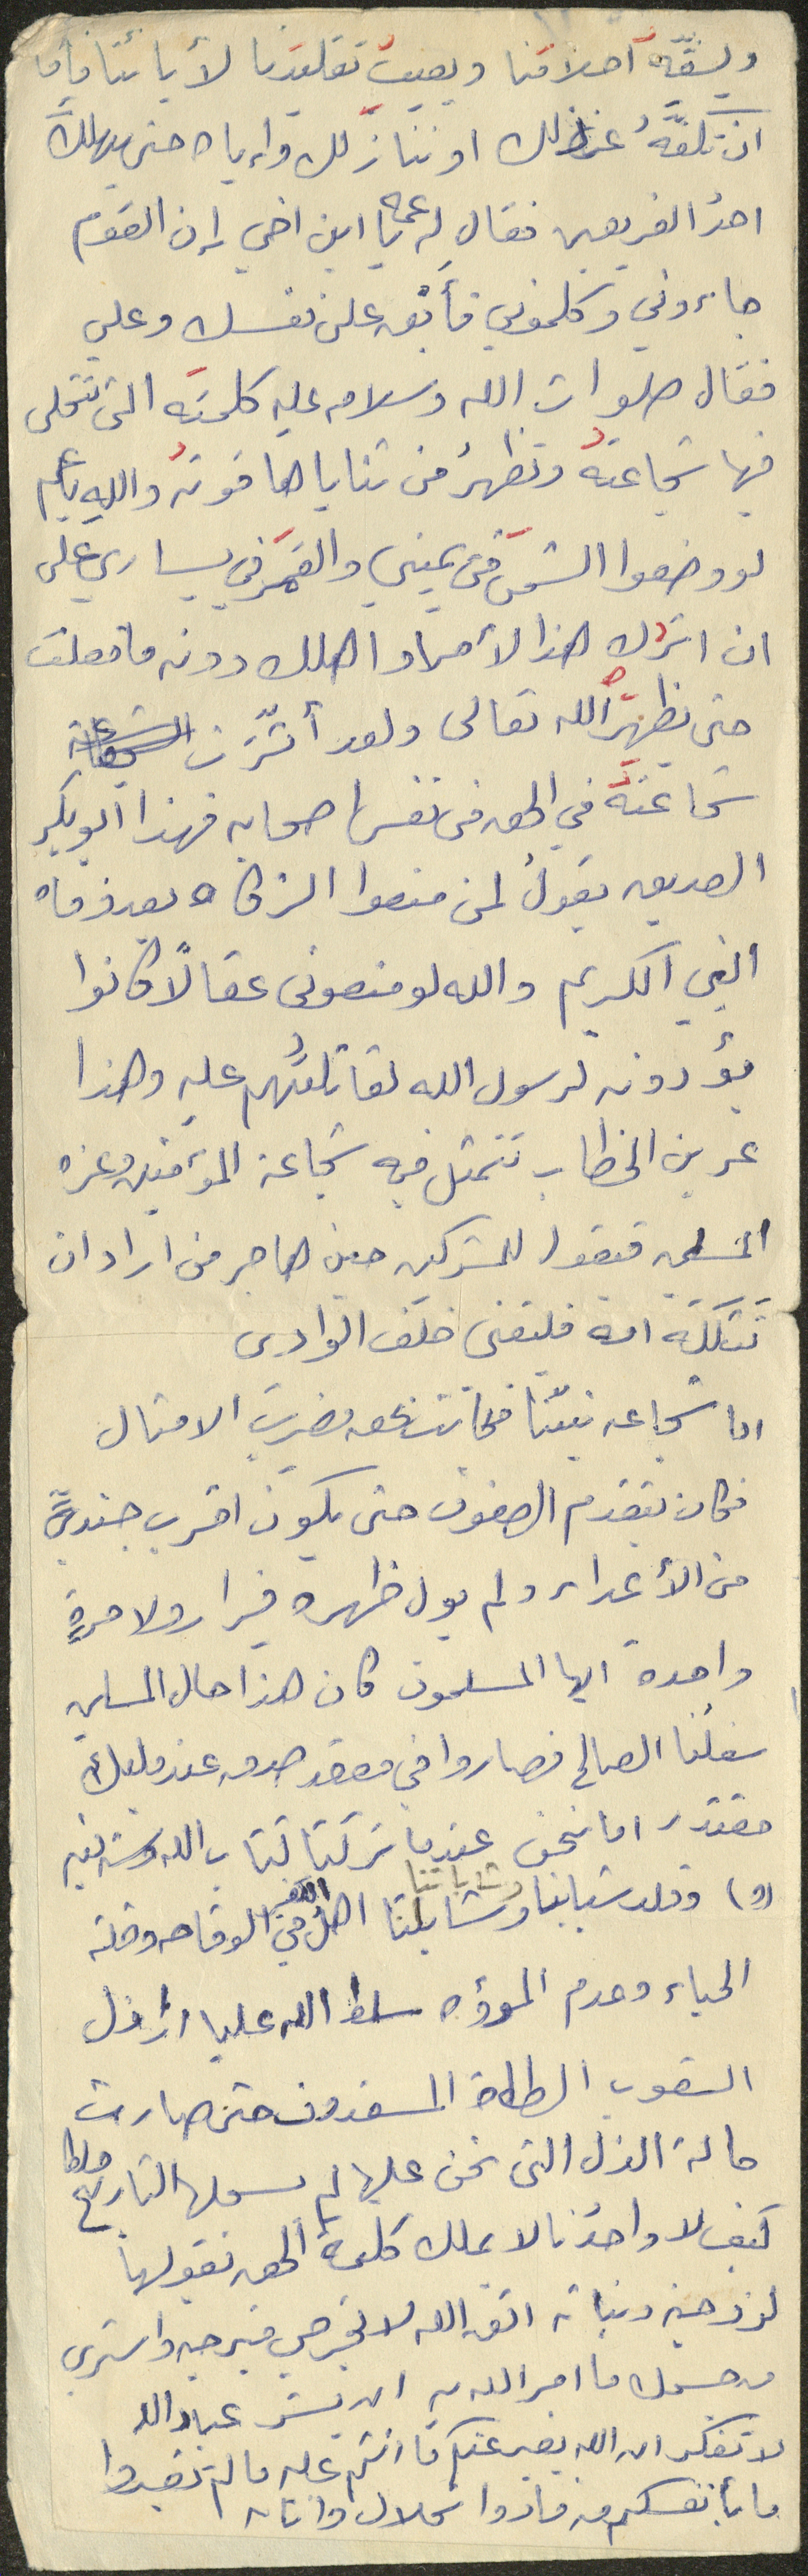 ويسفّه أحلامنا ويعيب تقليدنا لأبائنا فإما
ان تكفّه عن ذلك او ننازلك واياه حتى يهلك
احد الفريقين فقال له عمه يا ابن اخي إن القوم
جاءوني وكلموني فأبق على نفسك وعلي
فقال صلوات الله وسلامه عليه كلمته التى تتجلى
فيها شجاعته وتظهر من ثناياها قوته والله يا عم
لو وضعوا الشمس في يميني والقمر في يساري على
ان اترك هذا الأمر او اهلك دونه ما فعلت
حتى يظهره الله تعالى ولقد أثّرت
شجاعته في الحق في نفس اصحابه فهذا أبو بكر
الصديق يقول لمن منعوا الزكاه بعد وفاه
النبي الكريم والله لو منعونى عقالاً كانوا
يؤدونه لرسول الله لقاتلتُهم عليه وهذا
عمر بن الخطاب تتمثل فيه شجاعة المؤمنين وعزه
المسلمين فيقول للمشركين حين هاجر من اراد ان
تثكله امه فليلقنى خلف الوادى
اما شجاعه نبيّنا فكانت بحق مضرب الامثال
فكان يتقدم الصفوف حتى يكون اقرب جندي
من الأعداء ولم يول ظهره فرارا ولا مرةٍ
واحدة ايها المسلمون كان هذا حال المسلمين
سلفُنا الصالح فصاروا في مقعد صدق عند مليك
مقتدر اما نحن عندما تركنا كتاب الله وسنه نبيه
(و) وقلد شبابنا وشاباتنا اهل الكفر في الوقاحه وقلة
الحياء وعدم المروؤه سلط الله علينا ارذل
الشعوب الطغاة المفسدون حتى صارت
حالة الذل التى نحن عليها لم يسجلها التاريخ
كيف لا واحدُنا لا يملك كلمة الحق يقولها
لزوجته وبناته اتق الله لا تخرجي متبرجه واستري
من جسمك ما امر الله به ان يستر عباد الله
لا تفكر ان الله يغير عنكم ما انتم عليه ما لم تغيروا
ما بأنفسكم